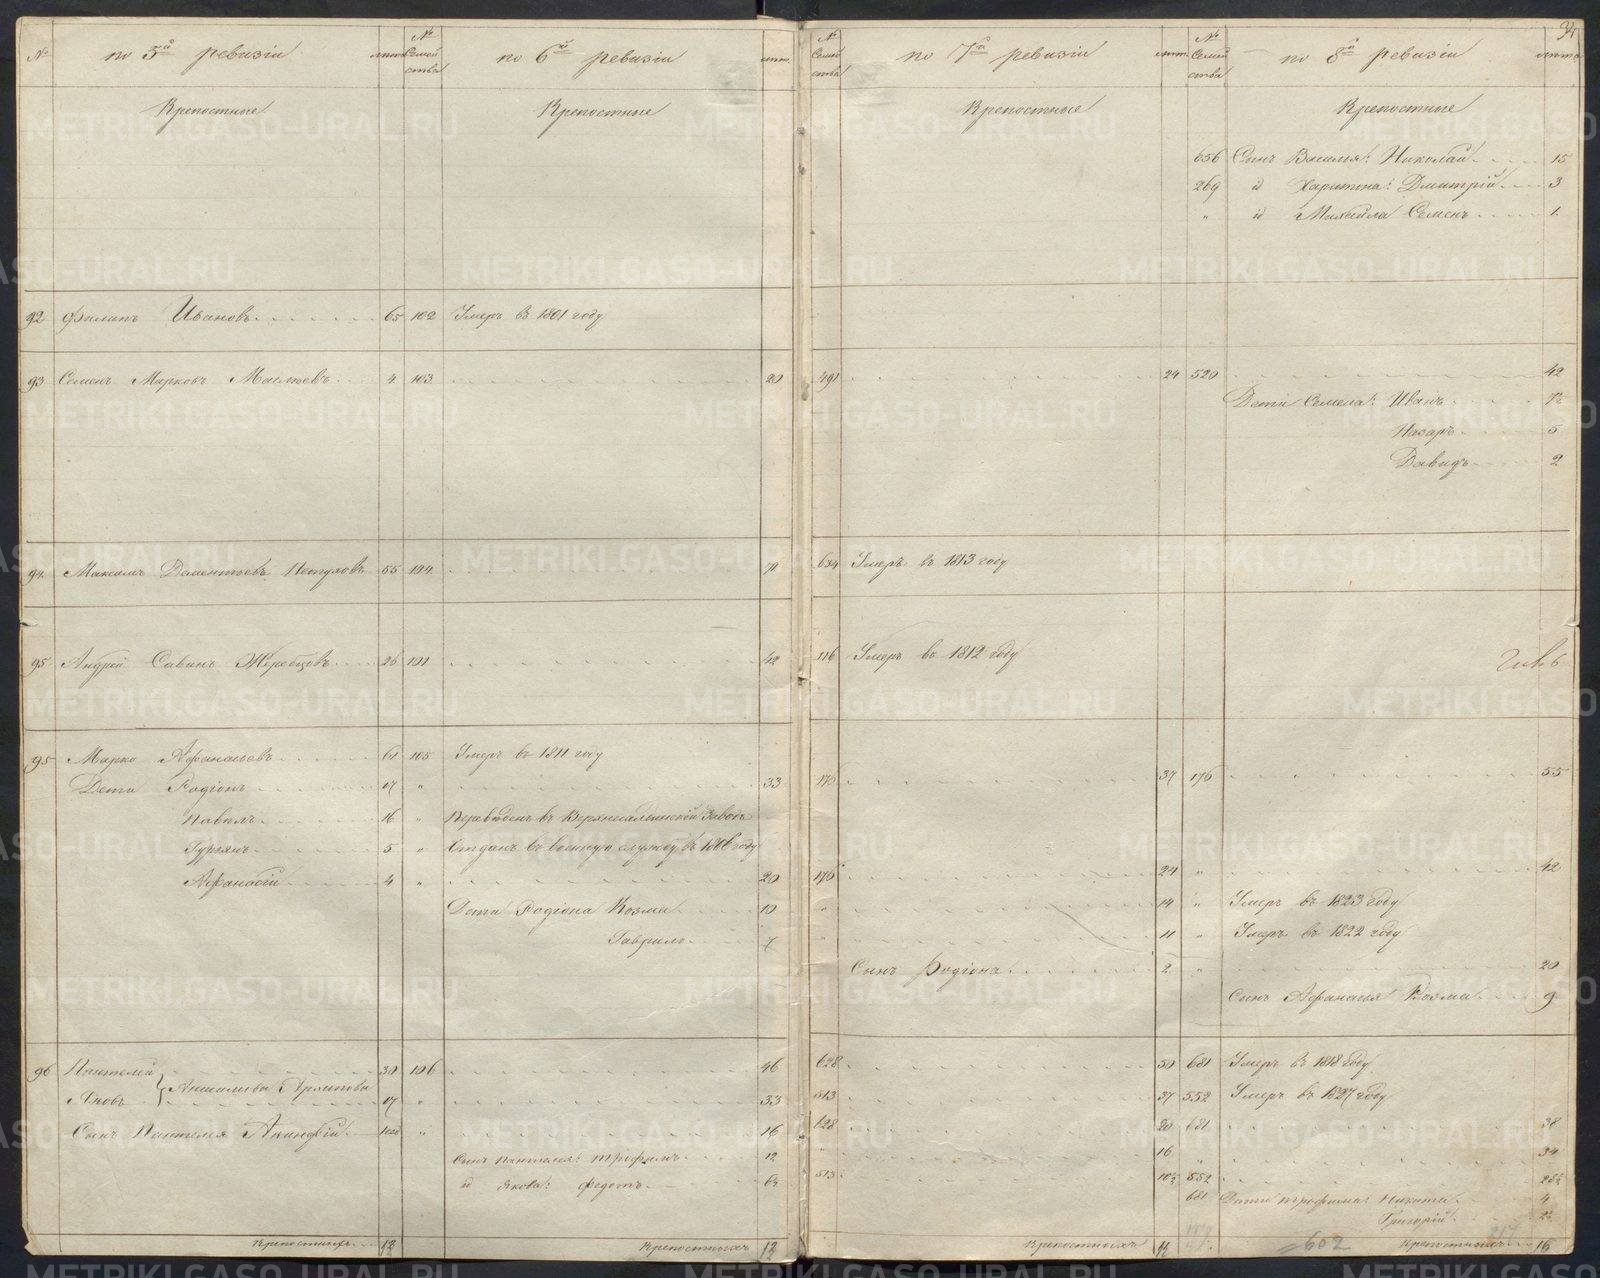 34
№ по 5й ревизіи лѣта № Семейства по 6й ревизіи лѣта № Семейства по 7й ревизіи лѣта № Семейства по 8й ревизіи лѣта
Крепостные Крепостные Крепостные Крепостные
656 Сынъ Василья: Николай 15
269 id Харитона: Дмитрій 3
" id Михайла Семенъ 1
92 Филипъ Ивановъ 65 102 Умеръ въ 1801 году
93 Семенъ Марковъ 4 103 20 491 24 520 42
Дети Семена: Иванъ 7½
Назаръ 5
Давидъ 2
94 Максимъ Дементьевъ Петуховъ 55 104 71 634 Умеръ въ 1813 году
95 Андрей Савинъ Жеребцовъ 26 101 42 116 Умеръ въ 1812 году
95 Марко Афанасьевъ 61 105 Умеръ въ 1811 году
Дети Родіонъ 17 " 33 176 37 176 55
Павелъ 16 " Переведенъ въ Верхнесалдинскій Заводъ
Гурьянъ 5 " Отданъ въ военную службу въ 1806 году
Афанасій 4 " 20 176 24 " 42
Дети Родіона Козма 10 " 14 " Умеръ въ 1823 году
Гаврило 7 " 11 " Умеръ въ 1822 году
Сынъ Родіона 2 " 20
Сынъ Афанасья Козма 9
96 Пантелей 30 106 46 628 50 681 Умеръ въ 1818 году
Яковъ 17 " 33 513 37 552 Умеръ въ 1827 году
Сынъ Пантелея Акинфій " 16 628 20 681 38
Сынъ Пантелея: Трофимъ 12 " 16 " 34
id Якова: Федотъ 6½ 513 10½ 552
681 Дети Трофима: Никита 4
Григорій 2½
Крепостныхъ 12 Крепостныхъ 12 Крепостныхъ 11 602 Крепостныхъ 16
METRIKI.GASO-URAL.RU